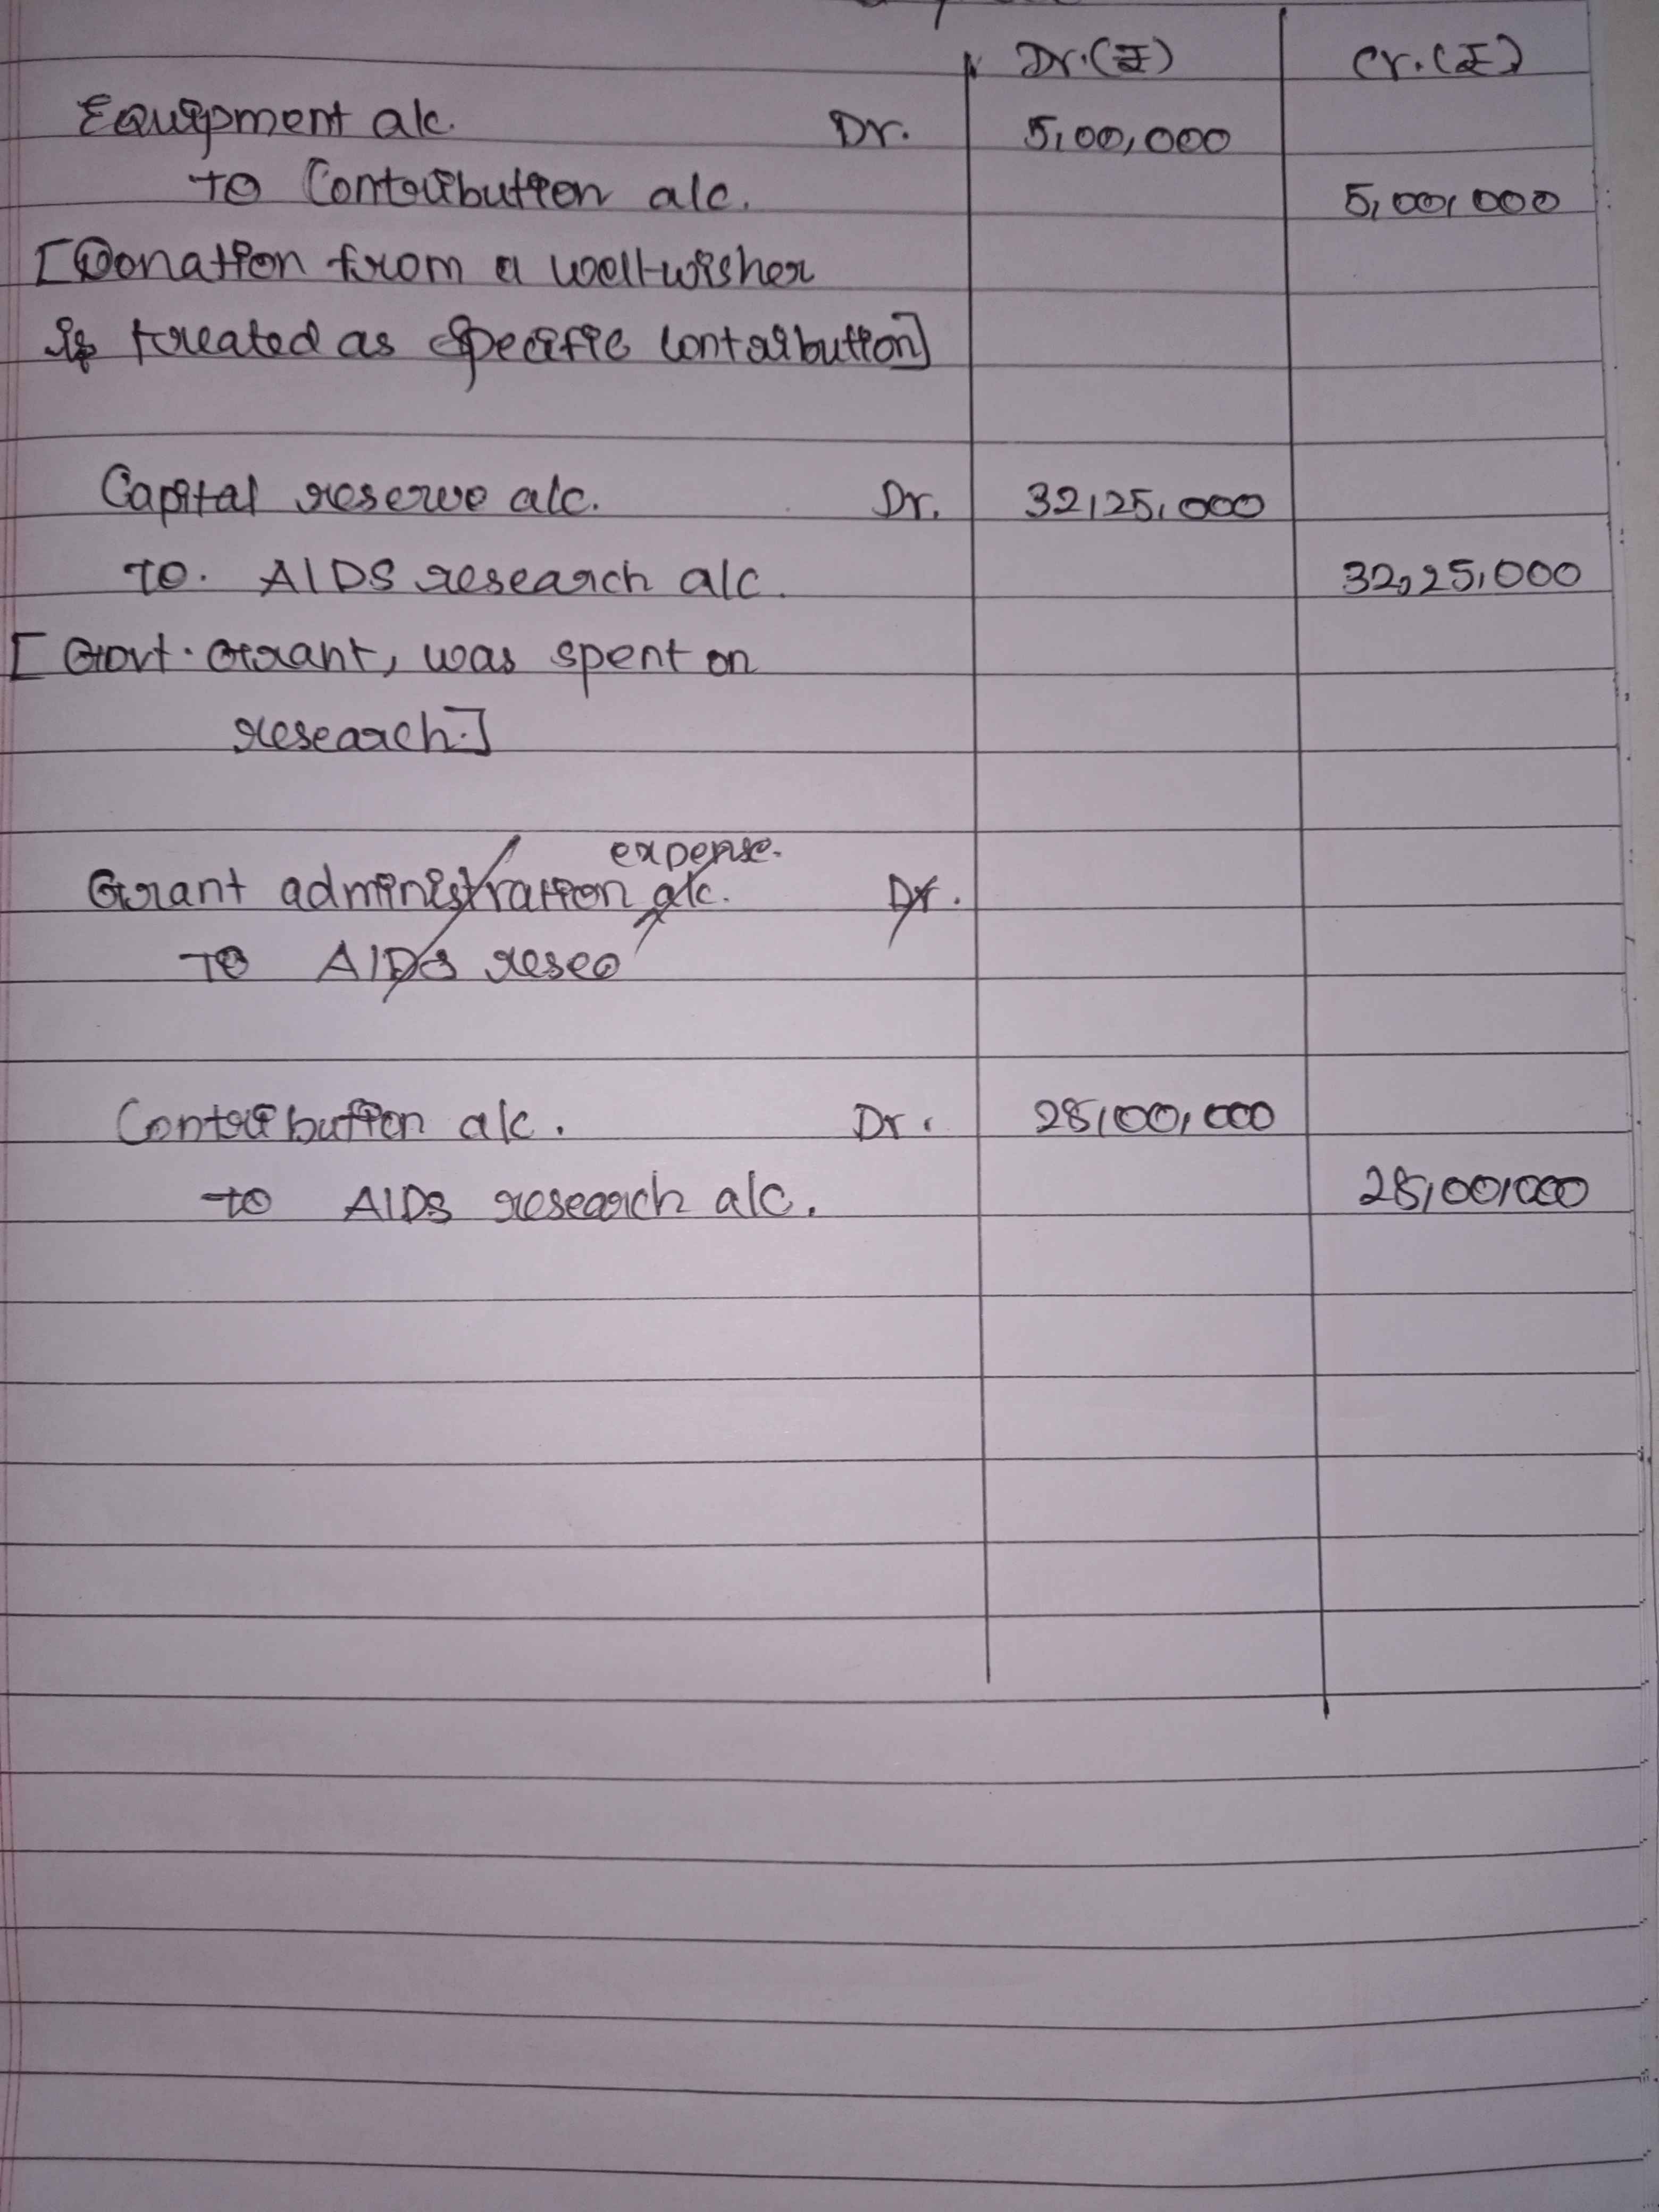 Dr.(₹) Cr.(₹)
Equipment a/c. Dr. 5,00,000
To Contribution a/c. 5,00,000
[Donation from a well-wisher
is treated as specific contribution]
Capital reserve a/c. Dr. 32,25,000
To. AIDS research a/c. 32,25,000
[Govt. Grant, was spent on
research.]
expense.
Grant administration a/c. Dr.
To AIDS resea
Contribution a/c. Dr. 25,00,000
To AIDS research a/c. 25,00,000